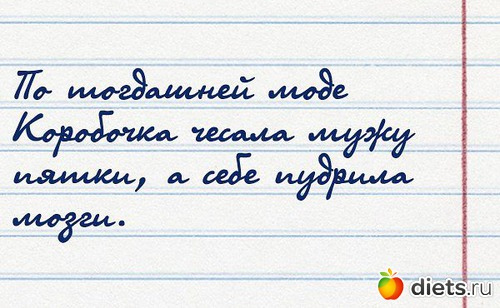 По тогдашней моде
Коробочка чесала мужу
пятки, а себе пудрила
мозги.
diets.ru